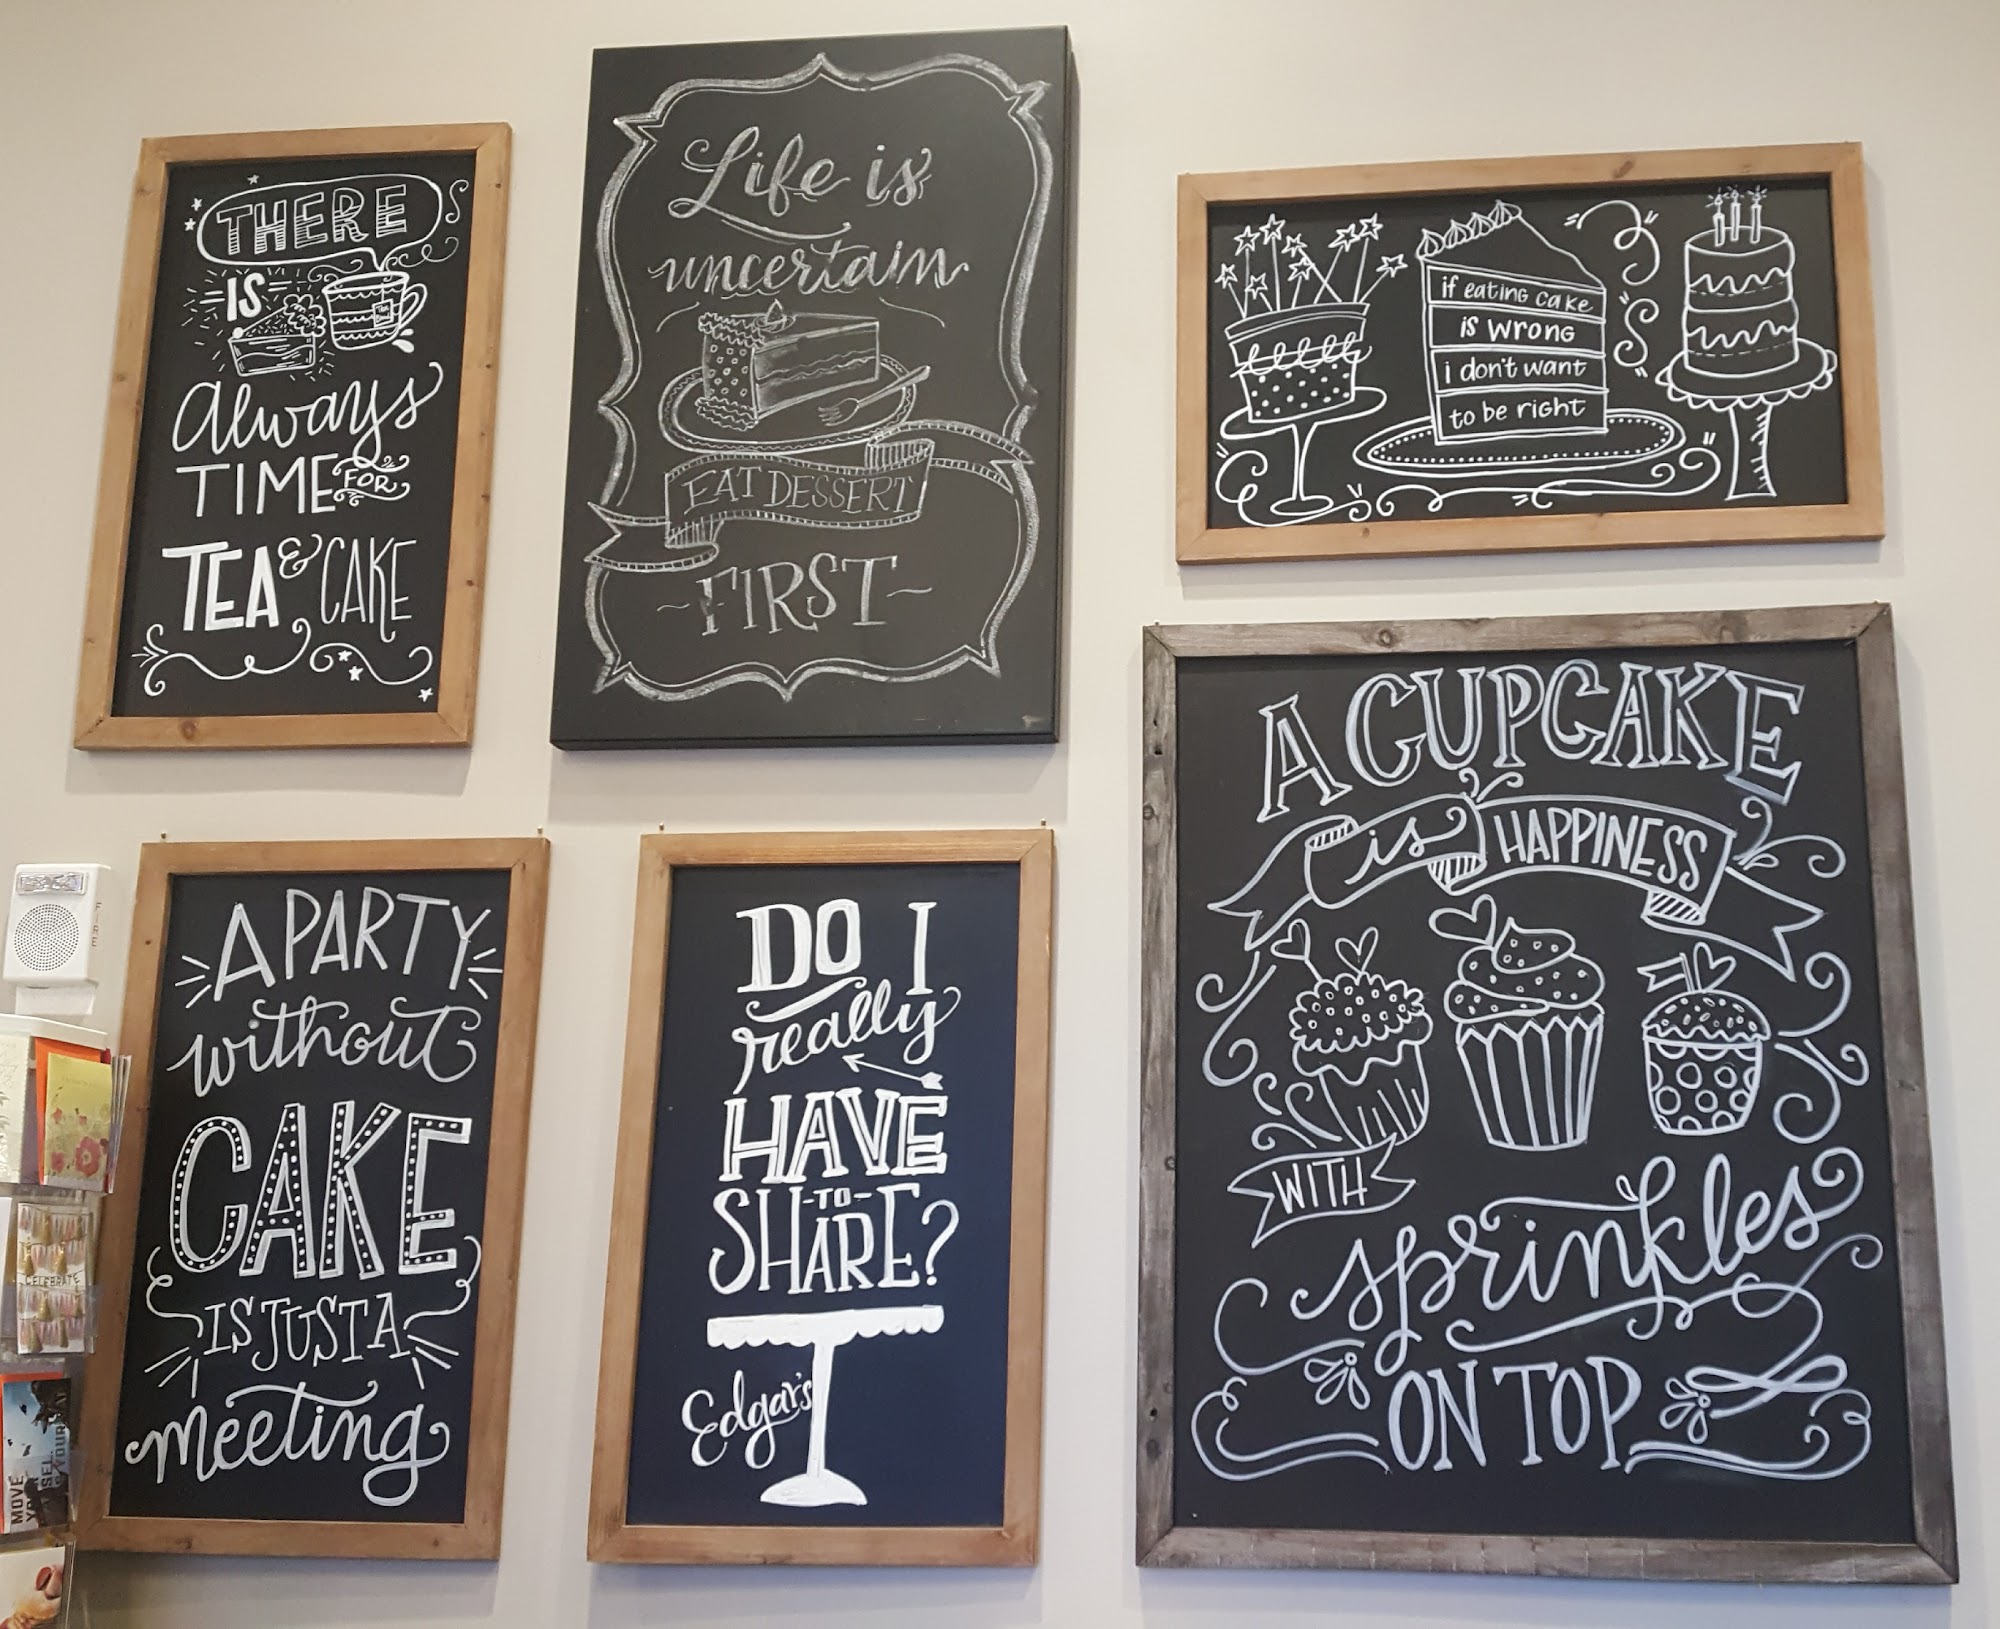 THERE
IS
always
TIME FOR
TEA & CAKE
Life is
uncertain
EAT DESSERT
~FIRST~
if eating cake
is wrong
i don't want
to be right
A PARTY
without
CAKE
IS JUST A
meeting
DO I
really
HAVE
-TO-
SHARE?
Edgar's
A CUPCAKE
is HAPPINESS
WITH
sprinkles
ON TOP
FIRE
CELEBRATE
MOVE